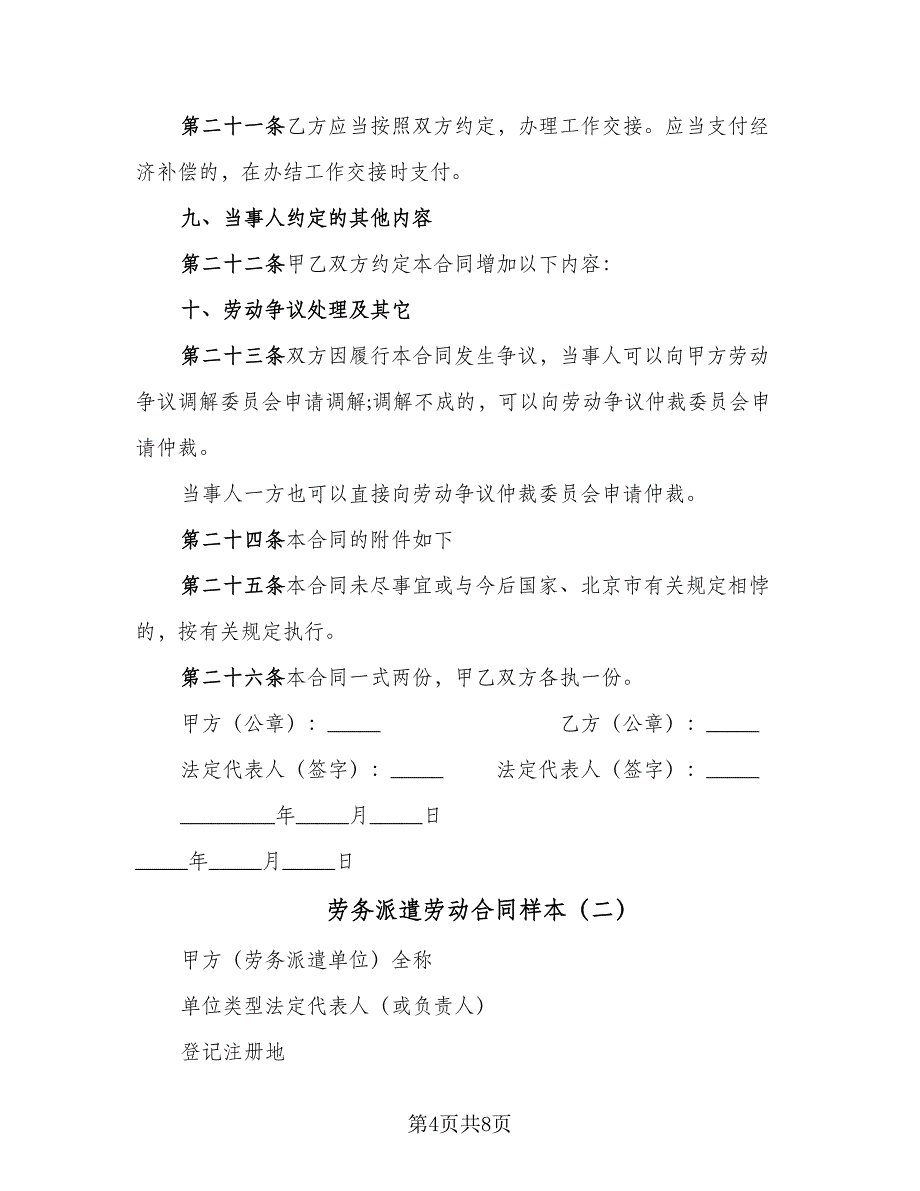 第二十一条乙方应当按照双方约定，办理工作交接。应当支付经
济补偿的，在办结工作交接时支付。
九、当事人约定的其他内容
第二十二条甲乙双方约定本合同增加以下内容：
十、劳动争议处理及其它
第二十三条双方因履行本合同发生争议，当事人可以向甲方劳动
争议调解委员会申请调解;调解不成的，可以向劳动争议仲裁委员会申
请仲裁。
当事人一方也可以直接向劳动争议仲裁委员会申请仲裁。
第二十四条本合同的附件如下
第二十五条本合同未尽事宜或与今后国家、北京市有关规定相悖
的，按有关规定执行。
第二十六条本合同一式两份，甲乙双方各执一份。
甲方（公章）：_____ 乙方（公章）：_____
法定代表人（签字）：_____ 法定代表人（签字）：_____
_________年_____月_____日
_____年_____月_____日
劳务派遣劳动合同样本（二）
甲方（劳务派遣单位）全称
单位类型法定代表人（或负责人）
登记注册地
第4页共8页